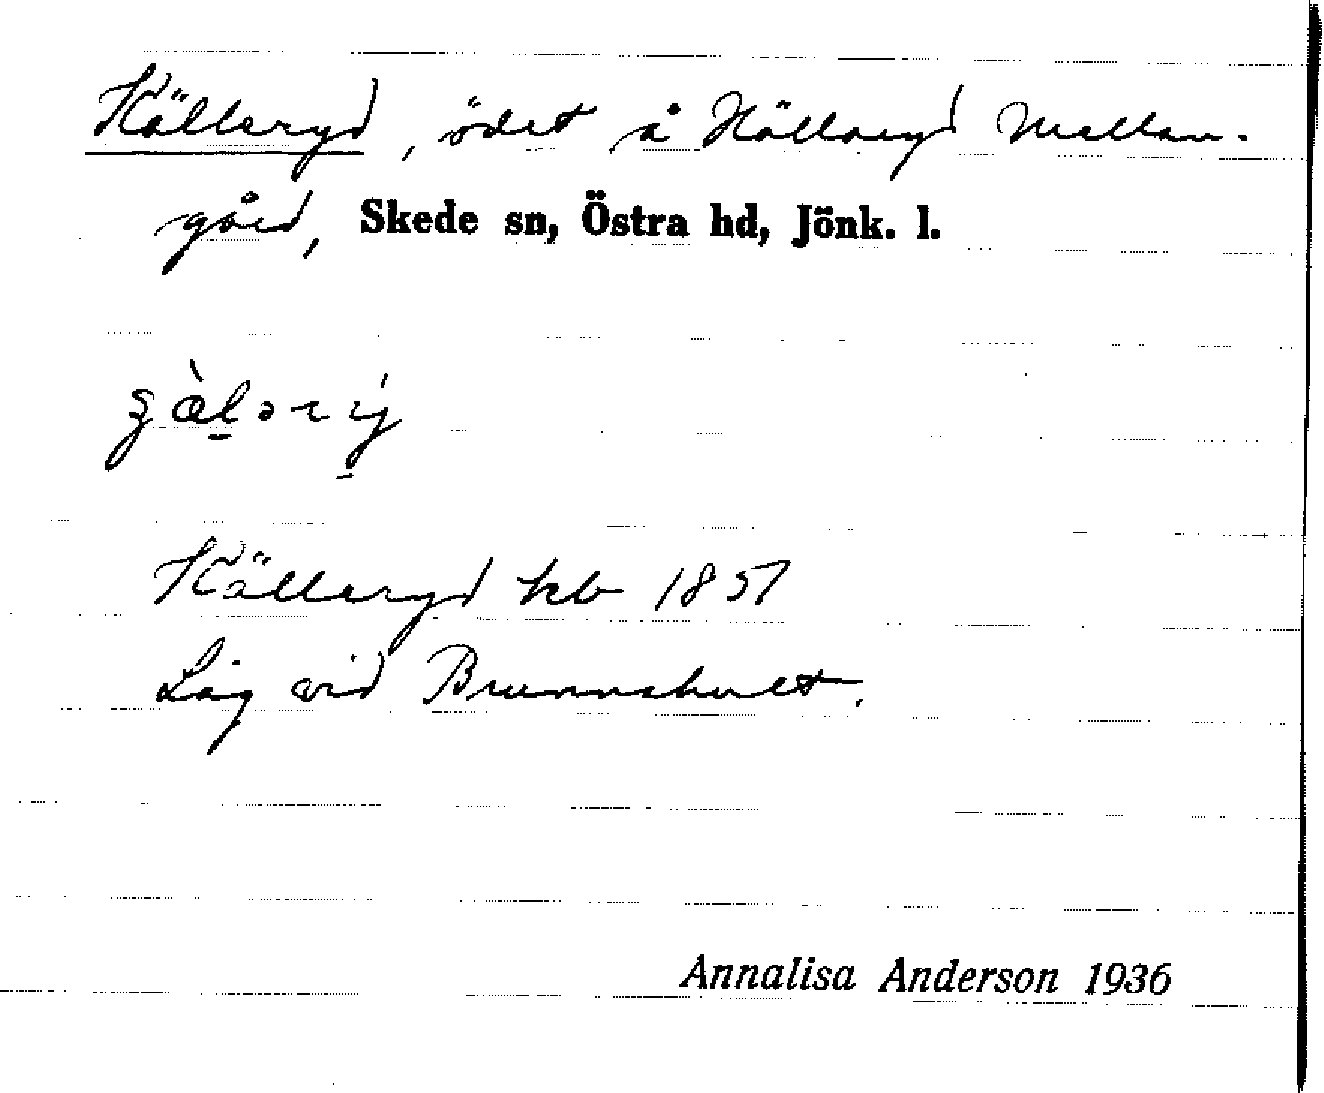 Källeryd, ödet å Hälleryd Mellan-
gård, Skede sn, Östra hd, Jönk. l.
Källeryd kb 1851
Låg vid Brunnshult.
Annalisa Anderson 1936